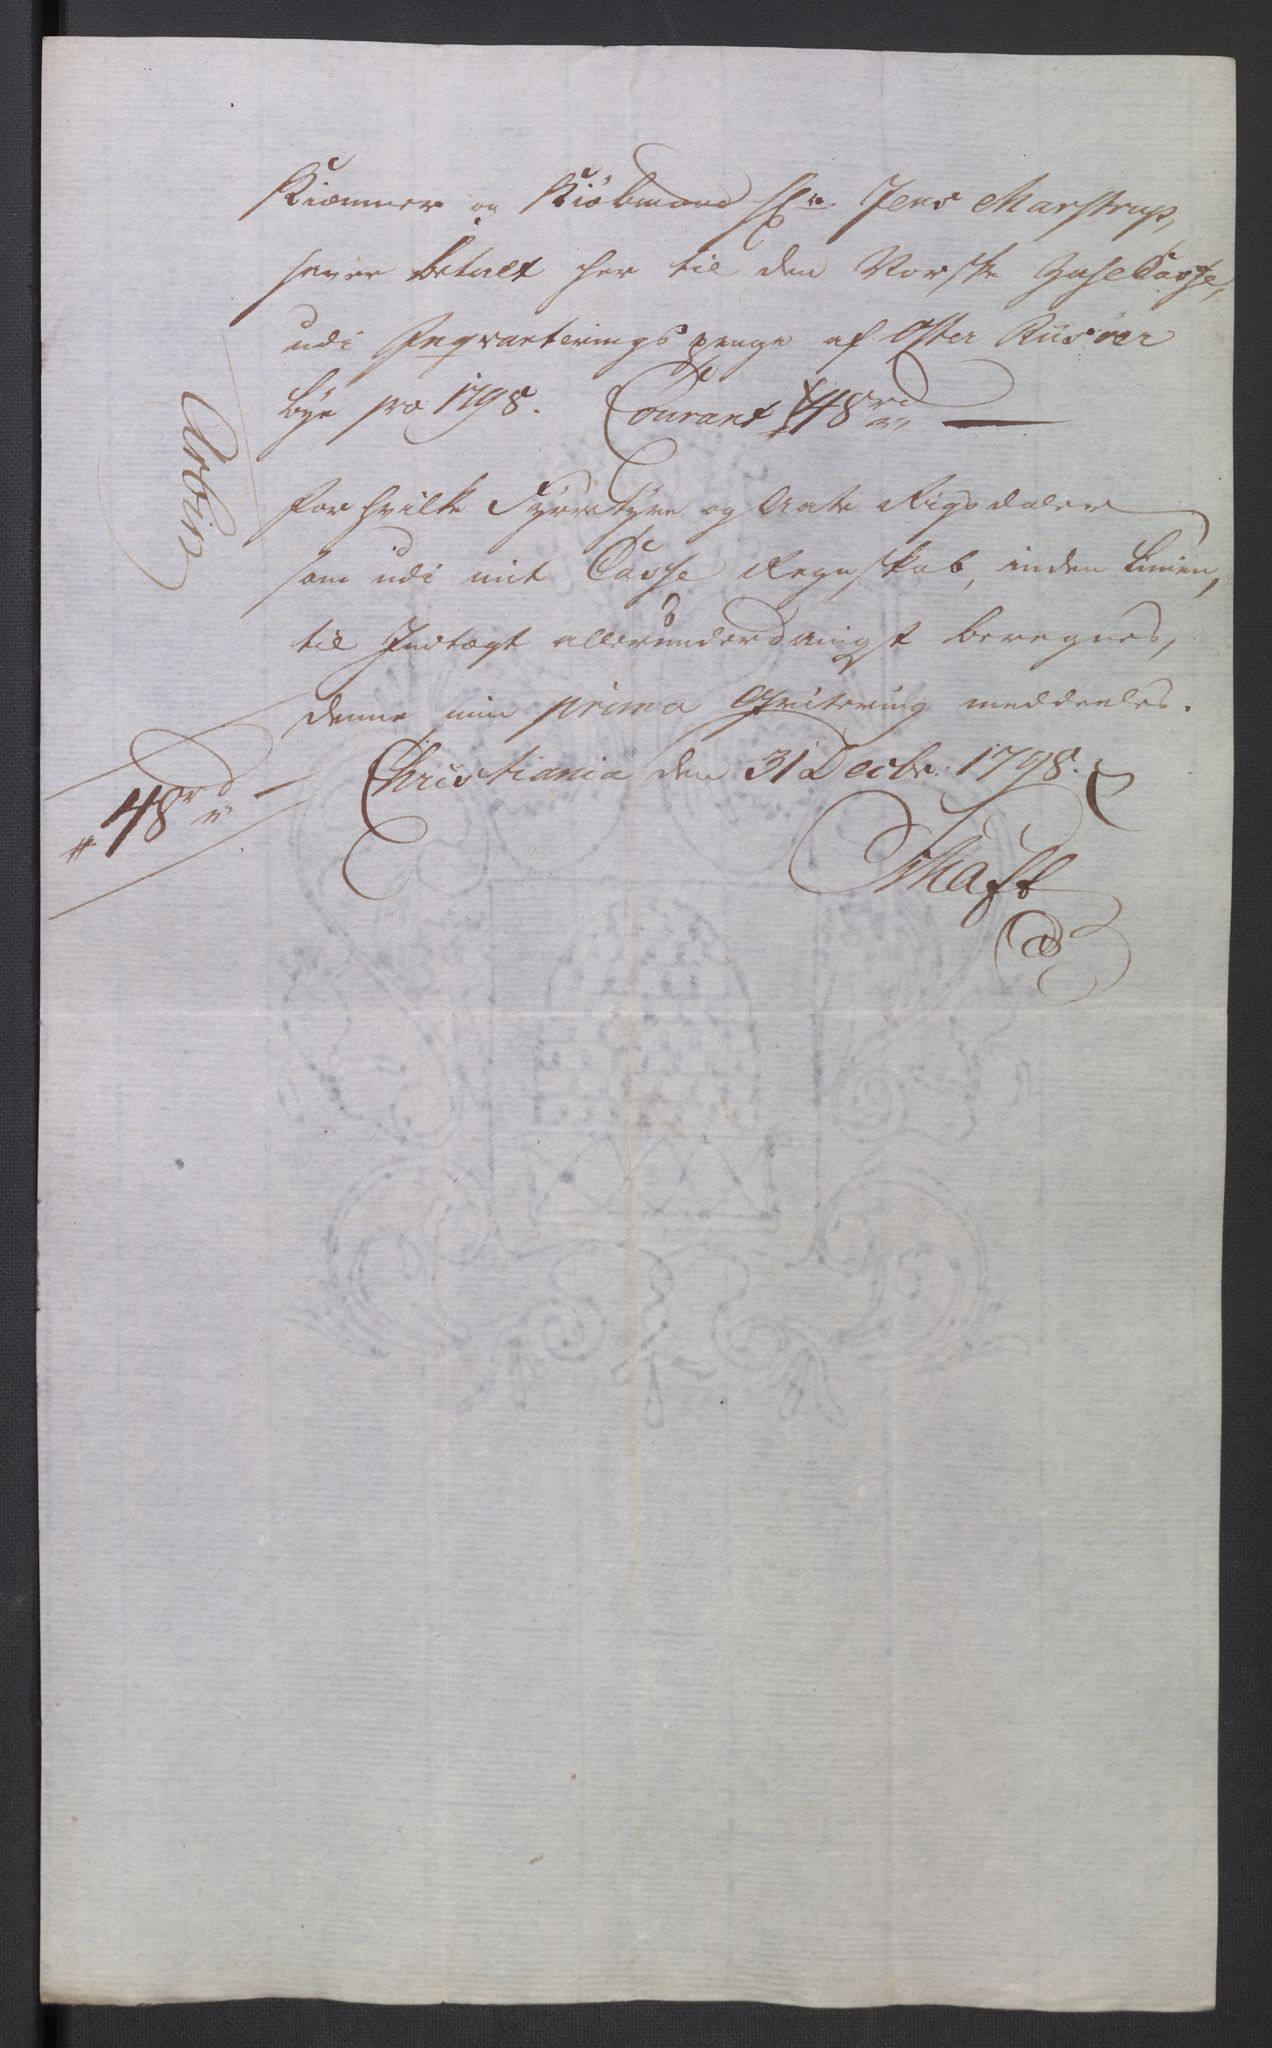 Kiæmner og Kiöbmand Hr. Jens Marstrup,
haver betalt her til den Norske Zahl Casse,
udi Inqvarterings penge af Oster Riisöer
bye pro 1798. Courant 48 rd
for hvilke Fyrretyve og Aate Rigsdaler
som udi mit Casse Regnskab, inden Linien,
til Indtægt allerunderdanigst beregnes,
denne min prima Qvitering meddeeles.
Christiania den 31 Decbr. 1798.
48 rd
Arbin